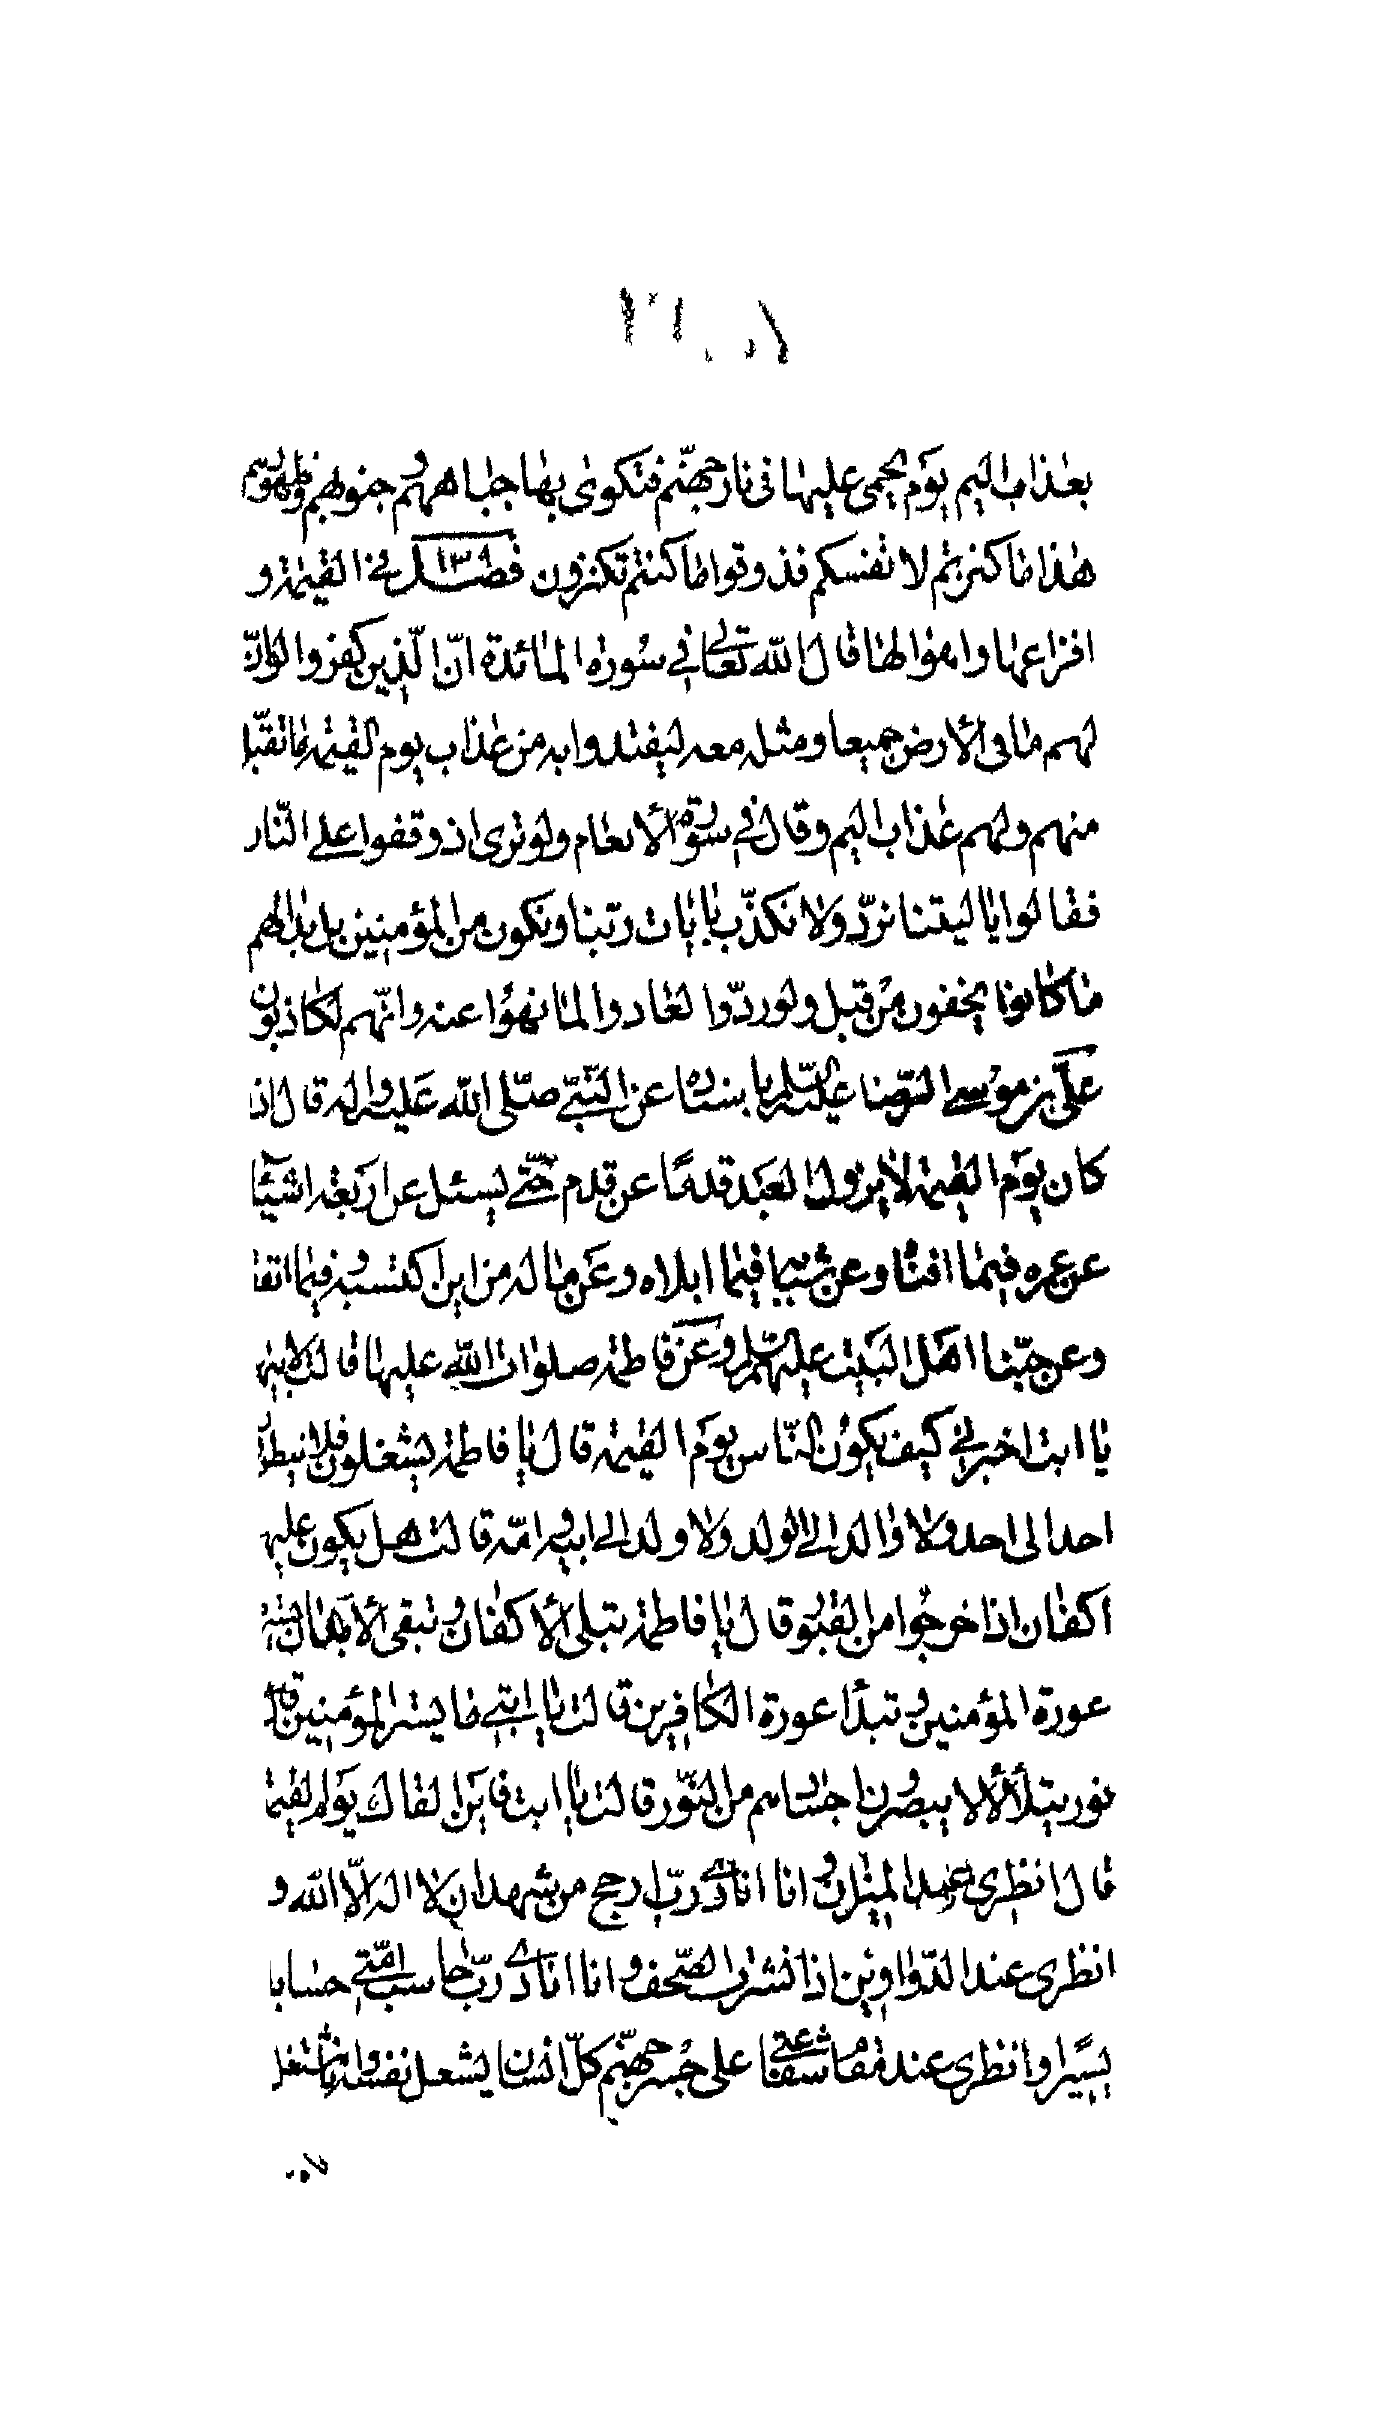 بعذاب اليم يوم يحمى عليها فى نار جهنّم فتكوى بها جباههم و جنوبهم وظهورهم
هذا ما كنزتم لانفسكم فذوقوا ما كنتم تكنزون فصل ١٣٨ فى القيمة و
افزاعها واهوالها قال الله تعالى في سورة المائدة انّ الّذين كفروا لو انّ
لهم ما فى الأرض جميعا ومثله معه ليفتدوا به من عذاب يوم القيمة ما تقبّل
منهم ولهم عذاب اليم وقال في سورة الأنعام ولو ترى اذ وقفوا على النّار
فقالوا يا ليتنا نردّ ولا نكذّب بايات ربّنا ونكون من المؤمنين بل بدا لهم
ما كانوا يخفون من قبل ولو ردّوا لعادوا لما نهوا عنه وانّهم لكاذبون
علىّ بن موسى الرّضا عليه السّلم باسناده عن النّبىّ صلّى الله عليه واله قال اذا
كان يوم القيمة لا يزول العبد قدما عن قدم حتّى يسئل عن اربعة اشياء
عن عمره فيما افناه وعن شبابه فيما ابلاه وعن ماله من اين اكتسبه وفيما انفقه
وعن حبّنا اهل البيت عليهم السّلم وعن فاطمة صلوات الله عليها قالت لابيها
يا ابت اخبرني كيف يكون النّاس يوم القيمة قال يا فاطمة يشغلون فلا ينظر
احد الى احد ولا والد الى الولد ولا ولد الى ابيه و امّه قالت هل يكون عليهم
اكفان اذا خرجوا من القبور قال يا فاطمة تبلى الأكفان و تبقى الأبدان تستر
عورة المؤمنين و تبدأ عورة الكافرين قالت يا ابتى ما يستر المؤمنين قال
نور يتلألأ لا يبصرون اجسادهم من النّور قالت يا ابت فاين القاك يوم القيمة
قال انظرى عند الميزان و انا انادى ربّ ارجح من شهد ان لا اله الّا الله و
انظرى عند الدّواوين اذا نشرت الصّحف و انا انادى ربّ حاسب امّتى حسابا
يسيرا وانظرى عند مقام شفاعتى على جسر جهنّم كلّ انسان يشغل نفسه و انا مشتغل